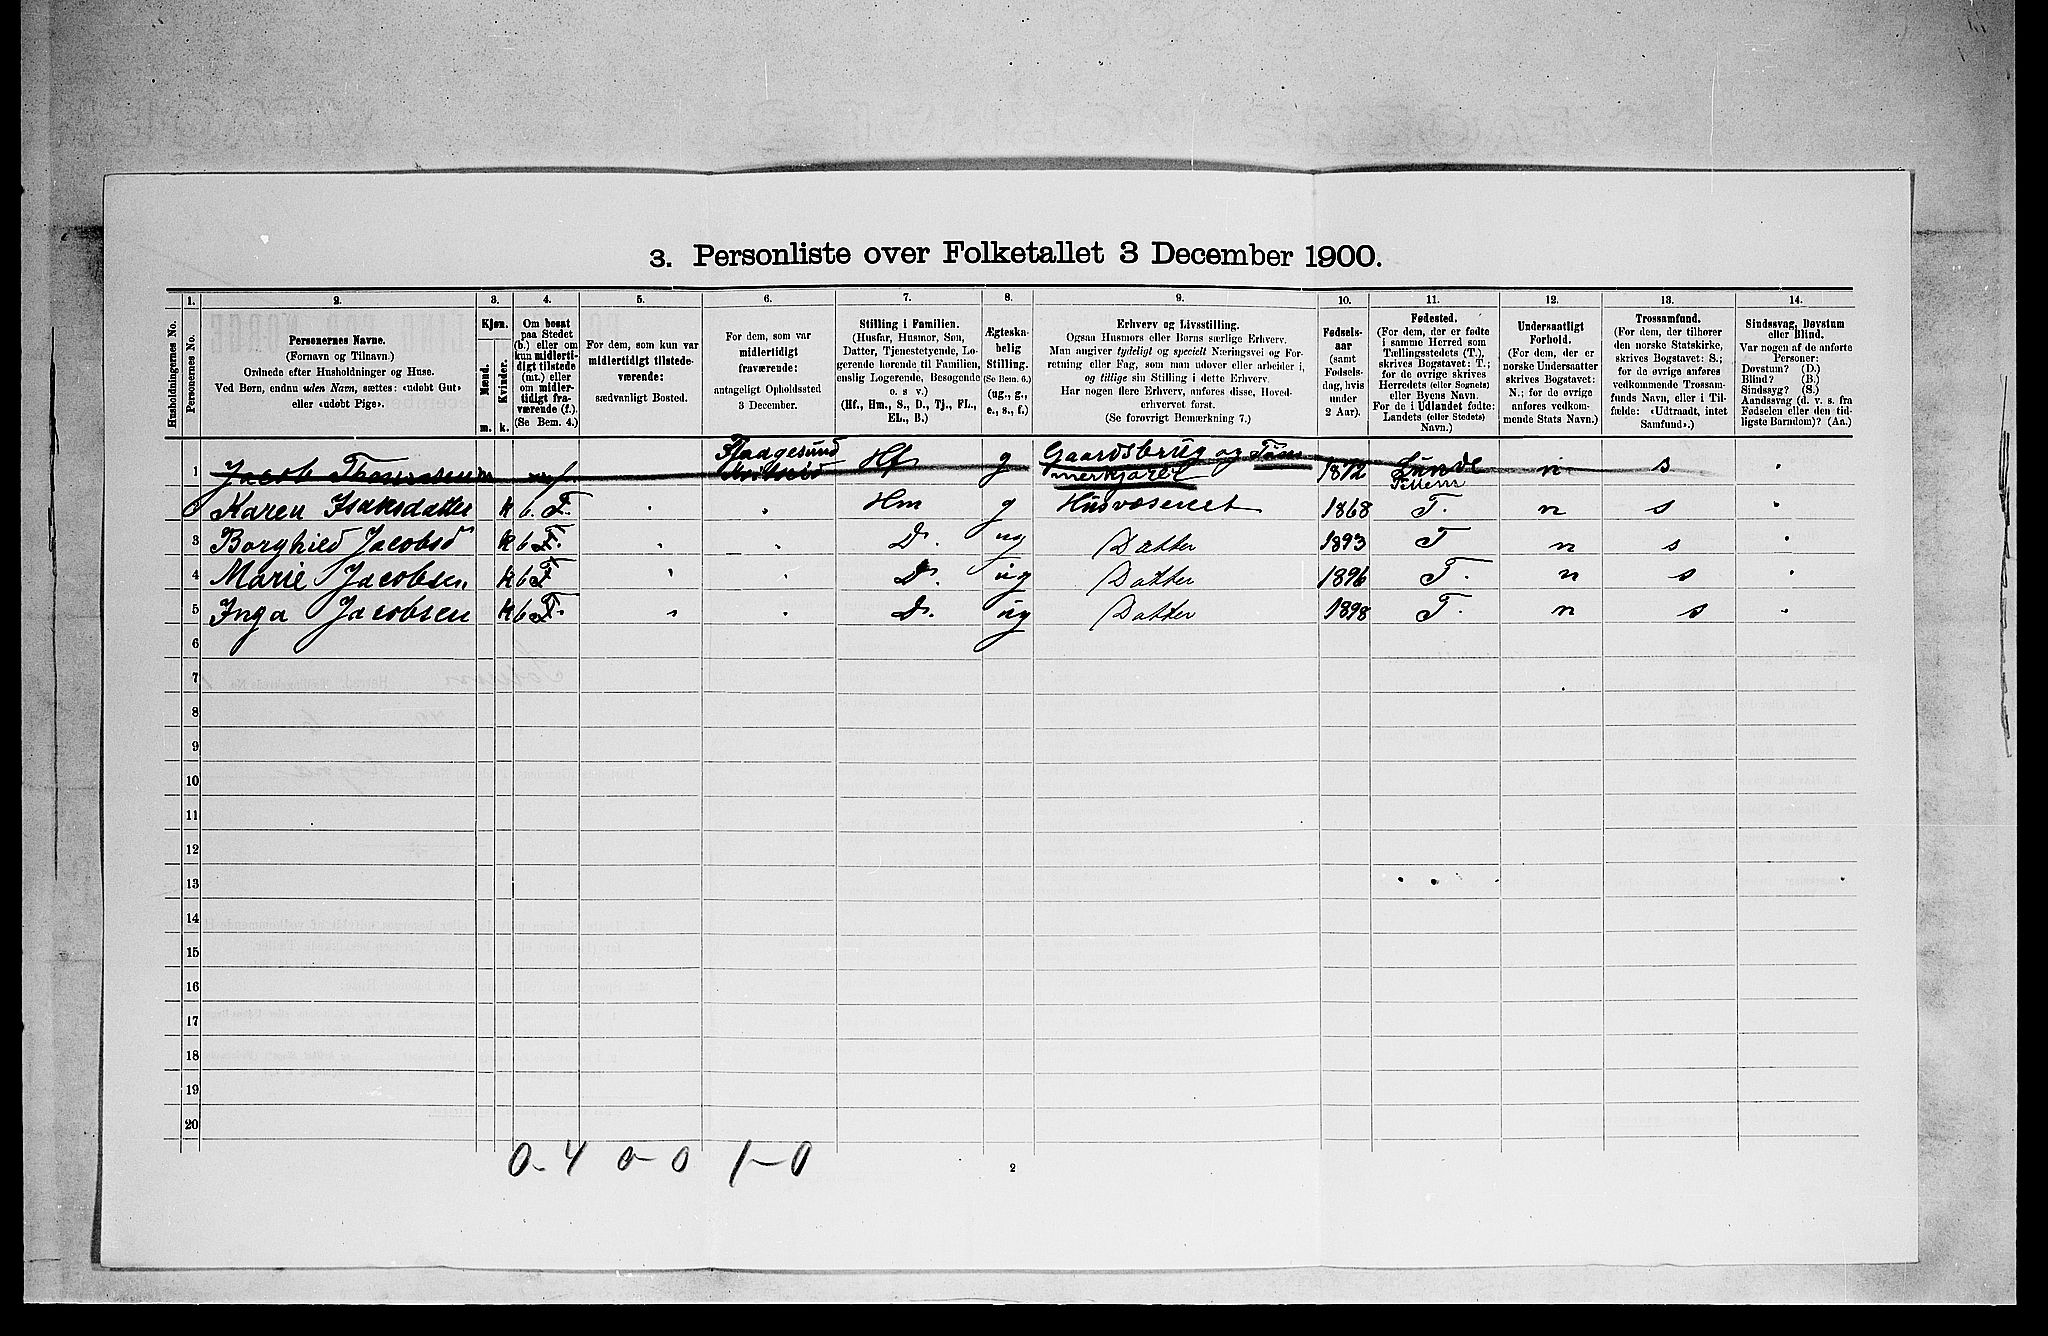 3. Personliste over Folketallet 3 December 1900.
1. 2. 3. 4. 5. 6. 7. 8. 9. 10. 11. 12. 13. 14.
Husholdningernes No.
Personernes No.
Personernes Navne.
(Fornavn og Tilnavn.)
Ordnede efter Husholdninger og Huse.
Ved Børn, endnu uden Navn, sættes: «udøbt Gut»
eller «udøbt Pige».
Kjøn.
Mænd.
Kvinder.
m. k.
Om bosat
paa Stedet
(b.) eller om
kun midlerti-
digt tilstede
(mt.) eller
om midler-
tidigt fra-
værende (f.).
(Se Bem. 4.)
For dem, som kun var
midlertidigt tilstede-
værende:
sædvanligt Bosted.
For dem, som var
midlertidigt
fraværende:
antageligt Opholdssted
3 December.
Stilling i Familien.
(Husfar, Husmor, Søn,
Datter, Tjenestetyende, Lo-
gerende hørende til Familien,
enslig Logerende, Besøgende
o. s v.)
(Hf., Hm., S., D., Tj., FL.,
EL., B.)
Ægteska-
belig
Stilling.
(Se Bem. 6.)
(ug., g.,
e., s., f.)
Erhverv og Livsstilling.
Ogsaa Husmors eller Børns særlige Erhverv.
Man angiver tydeligt og specielt Næringsvei og For-
retning eller Fag, som man udøver eller arbeider i,
og tillige sin Stilling i dette Erhverv.
Har nogen flere Erhverv, anføres disse, Hoved-
erhvervet først.
(Se forøvrigt Bemærkning 7.)
Fødsels-
aar
(samt
Fødsels-
dag, hvis
under
2 Aar).
Fødested.
(For dem, der er fødte
i samme Herred som
Tællingsstedets (T.),
skrives Bogstavet: T.;
for de øvrige skrives
Herredets (eller Sognets)
eller Byens Navn.
For de i Udlandet fødte:
Landets (eller Stedets)
Navn.)
Undersaatligt
Forhold.
(For dem, der er
norske Undersaatter
skrives Bogstavet:
N.; for de øvrige
anføres vedkom-
mende Stats Navn.)
Trossamfund.
(For dem, der tilhører
den norske Statskirke,
skrives Bogstavet: S.;
for de øvrige anføres
vedkommende Trossam-
funds Navn, eller i Til-
fælde: «Udtraadt, intet
Samfund».)
Sindssvag, Døvstum
eller Blind.
Var nogen af de anførte
Personer:
Døvstum? (D.)
Blind? (B.)
Sindssyg? (S.)
Aandssvag (d. v. s. fra
Fødselen eller den tid-
ligste Barndom)? (Aa.)
1 Jacob Thomassen Hf g Gaardsbrug og Tøm
merkjører 1872 Lunde n s
Karen Isaksdatter k b Hm g Husvæsenet 1868 T. n s
3 Borghild Jacobsd k b D. ug Datter 1893 T n s
4 Marie Jacobsen k b D. ug Datter 1896 T. n s
5 Inga Jacobsen k b D. ug Datter 1898 T. n s
6
7
8
9
10
11
12
13
14
15
16
17
18
19
20
0-4 0-0 1-0
2